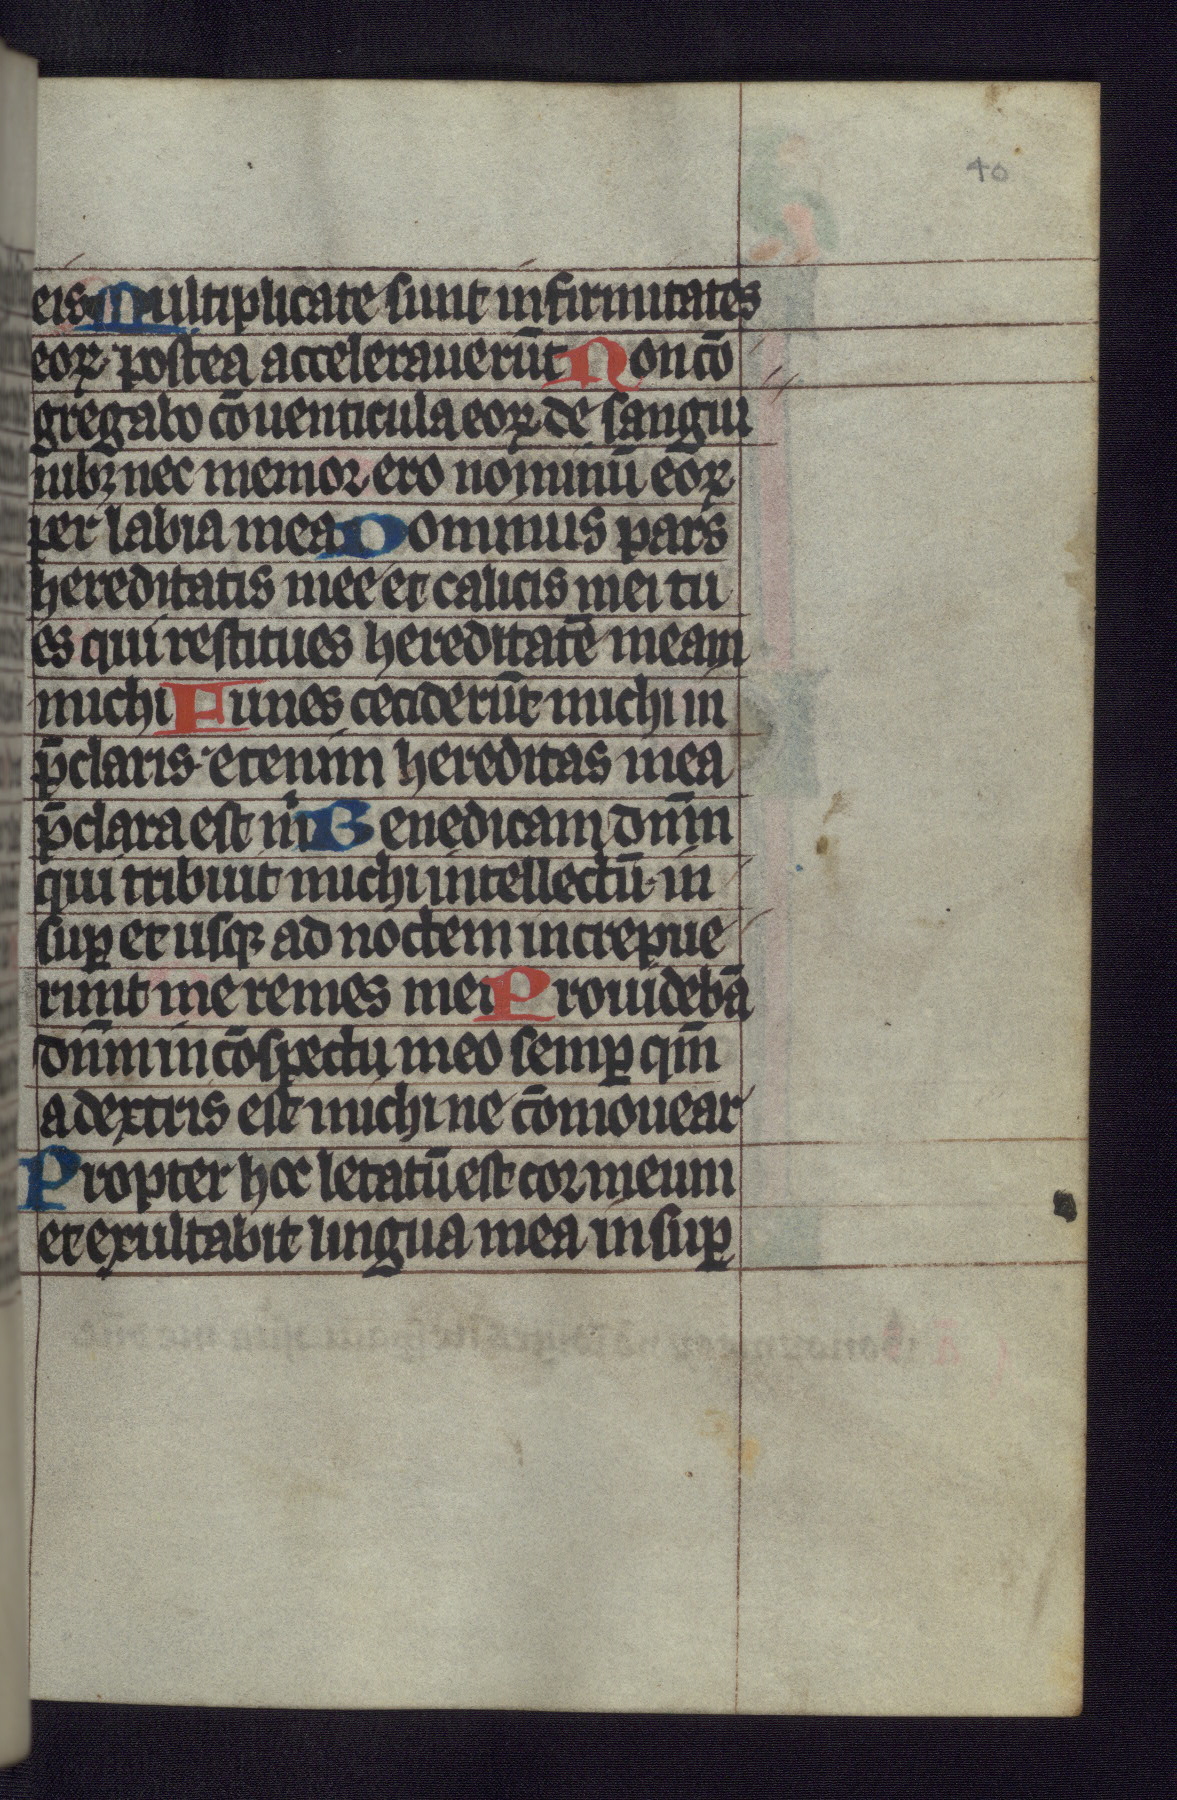 40
eis Multiplicate sunt infirmitates
eoꝝ postea accelerauerūt Non cō
gregabo cōuenticula eoꝝ de sangui
nibꝫ nec memor ero nominū eoꝝ
per labia mea Dominus pars
hereditatis mee et calicis mei tu
es qui restitues hereditatē meam
michi Funes ceciderūt michi in
p̄claris· etenim hereditas mea
p̄clara est m̅ Benedicam dn̄m
qui tribuit michi intellectū· in
suꝑ et usqꝫ ad noctem increpue
runt me renes mei Prouidebā
dn̄m in cōspectu meo semꝑ qm̄
a dextris est michi ne cōmouear
Propter hoc letatū est cor meum
et exultabit lingua mea insuꝑ